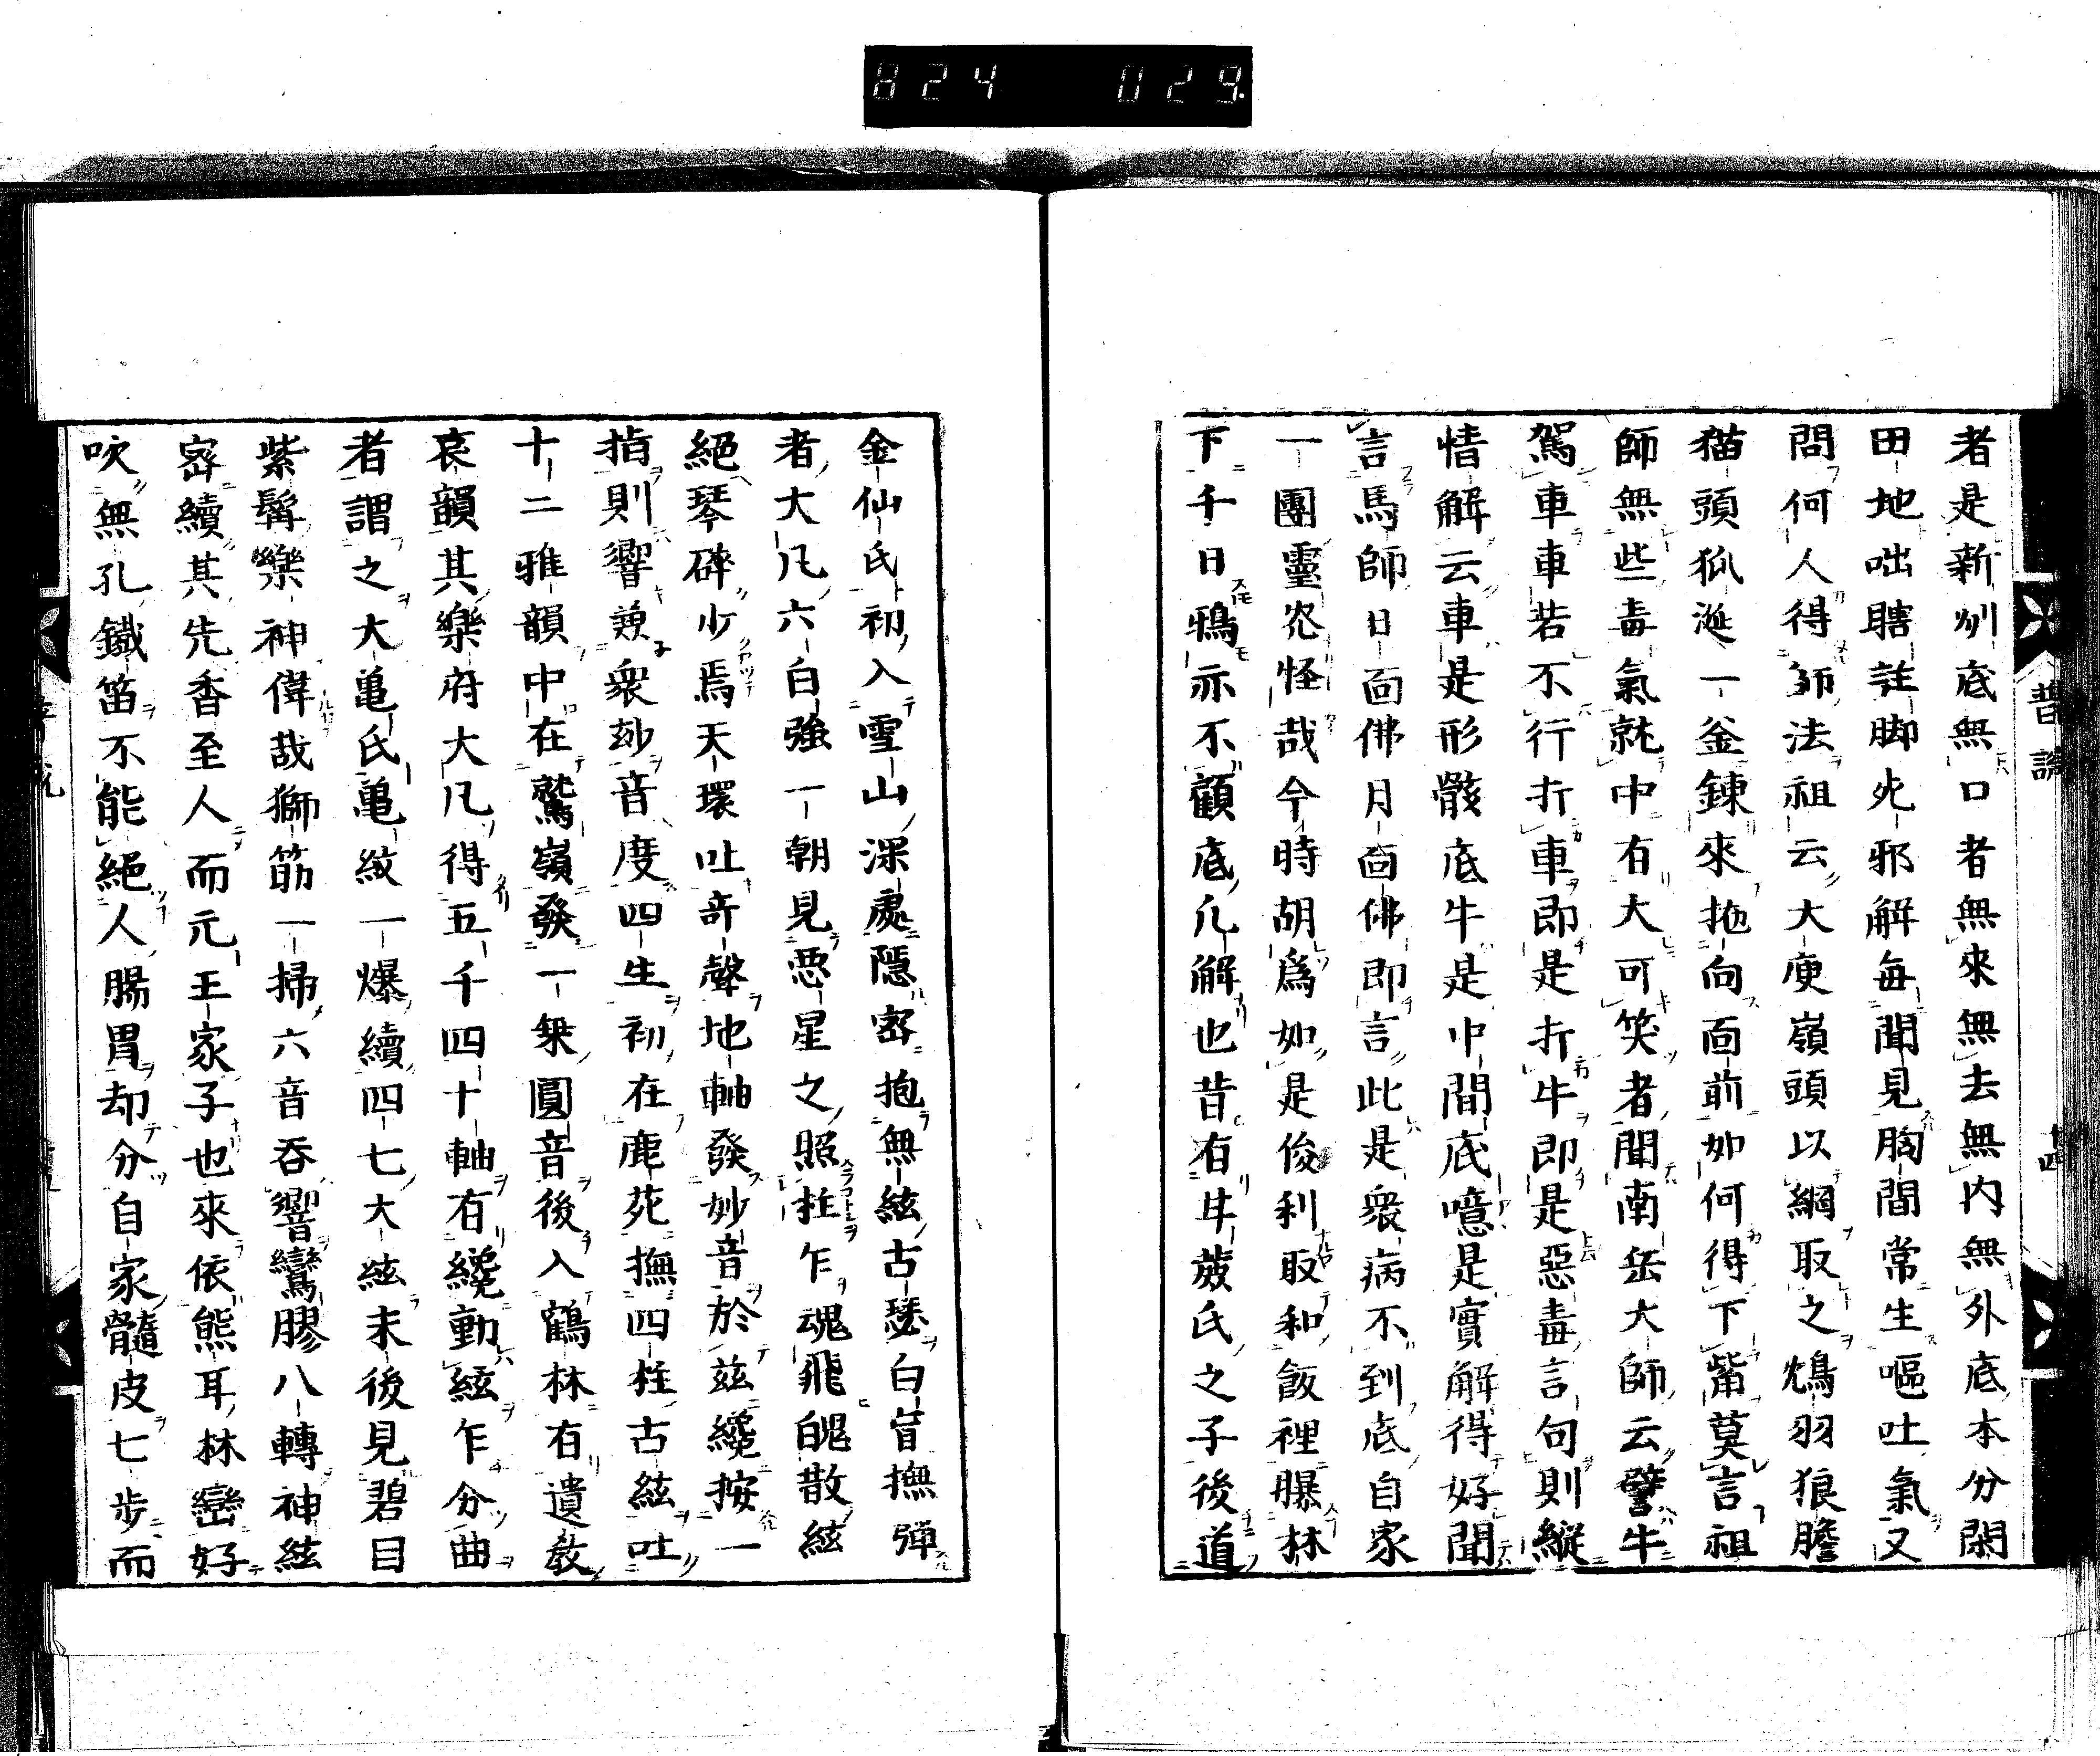 824 029
者是新州底無口者無來無去無内無外底本分閑
田地咄瞎註脚死邪解毎聞見胸間常生嘔吐氣又
問何人得師法祖云大庾嶺頭以網取之鴆羽狼膽
猫頭狐涎一釜錬來拖向面前如何得下觜莫言祖
師無些毒氣就中有大可笑者聞南岳大師云譬牛
駕車車若不行打車即是打牛即是惡毒言句則縱
情解云車是形骸底牛是中間底噫是實解得好聞
言馬師日面佛月面佛即言此是衆病不到底自家
一團靈光怪哉今時胡爲如是俊利取和飯裡曝林
下千日鴉亦不顧底凡解也昔有牛蘞氏之子後道
金仙氏初入雪山深處隱密抱無絃古瑟白盲撫彈
者大凡六白強一朝見惡星之照柱乍魂飛魄散絃
絕琴碎少焉天環吐奇聲地軸發妙音於茲纔按一
指則響兼衆玅音度四生初在鹿苑撫四柱古絃吐
十二雅韻中在鷲嶺發一乗圓音後入鶴林有遺教
哀韻其樂府大凡得五千四十軸有纔動絃乍分曲
者謂之大亀氏亀紋一爆續四七大絃末後見碧目
紫髯樂神偉哉獅筋一掃六音吞響鸞膠八轉神絃
密續其先香至人而元王家子也來依熊耳林巒好
吹無孔鐵笛不能絕人腸胃却分自家髓皮七步而
普說
十四